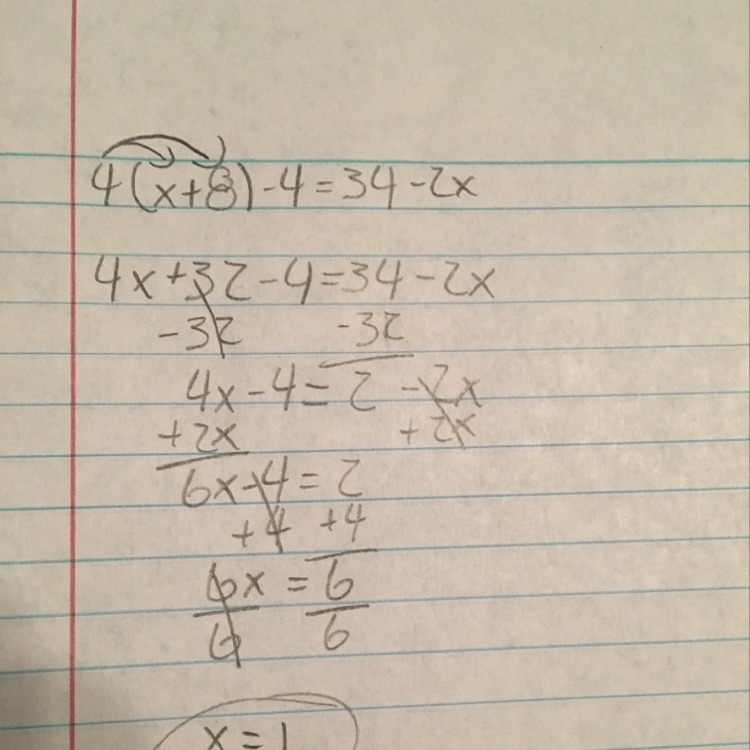 4(x+8)-4=34-2x
4x+32-4=34-2x
-32 -32
4x-4=2-2x
+2x +2x
6x-4=2
+4 +4
6x=6
6 6
x=1